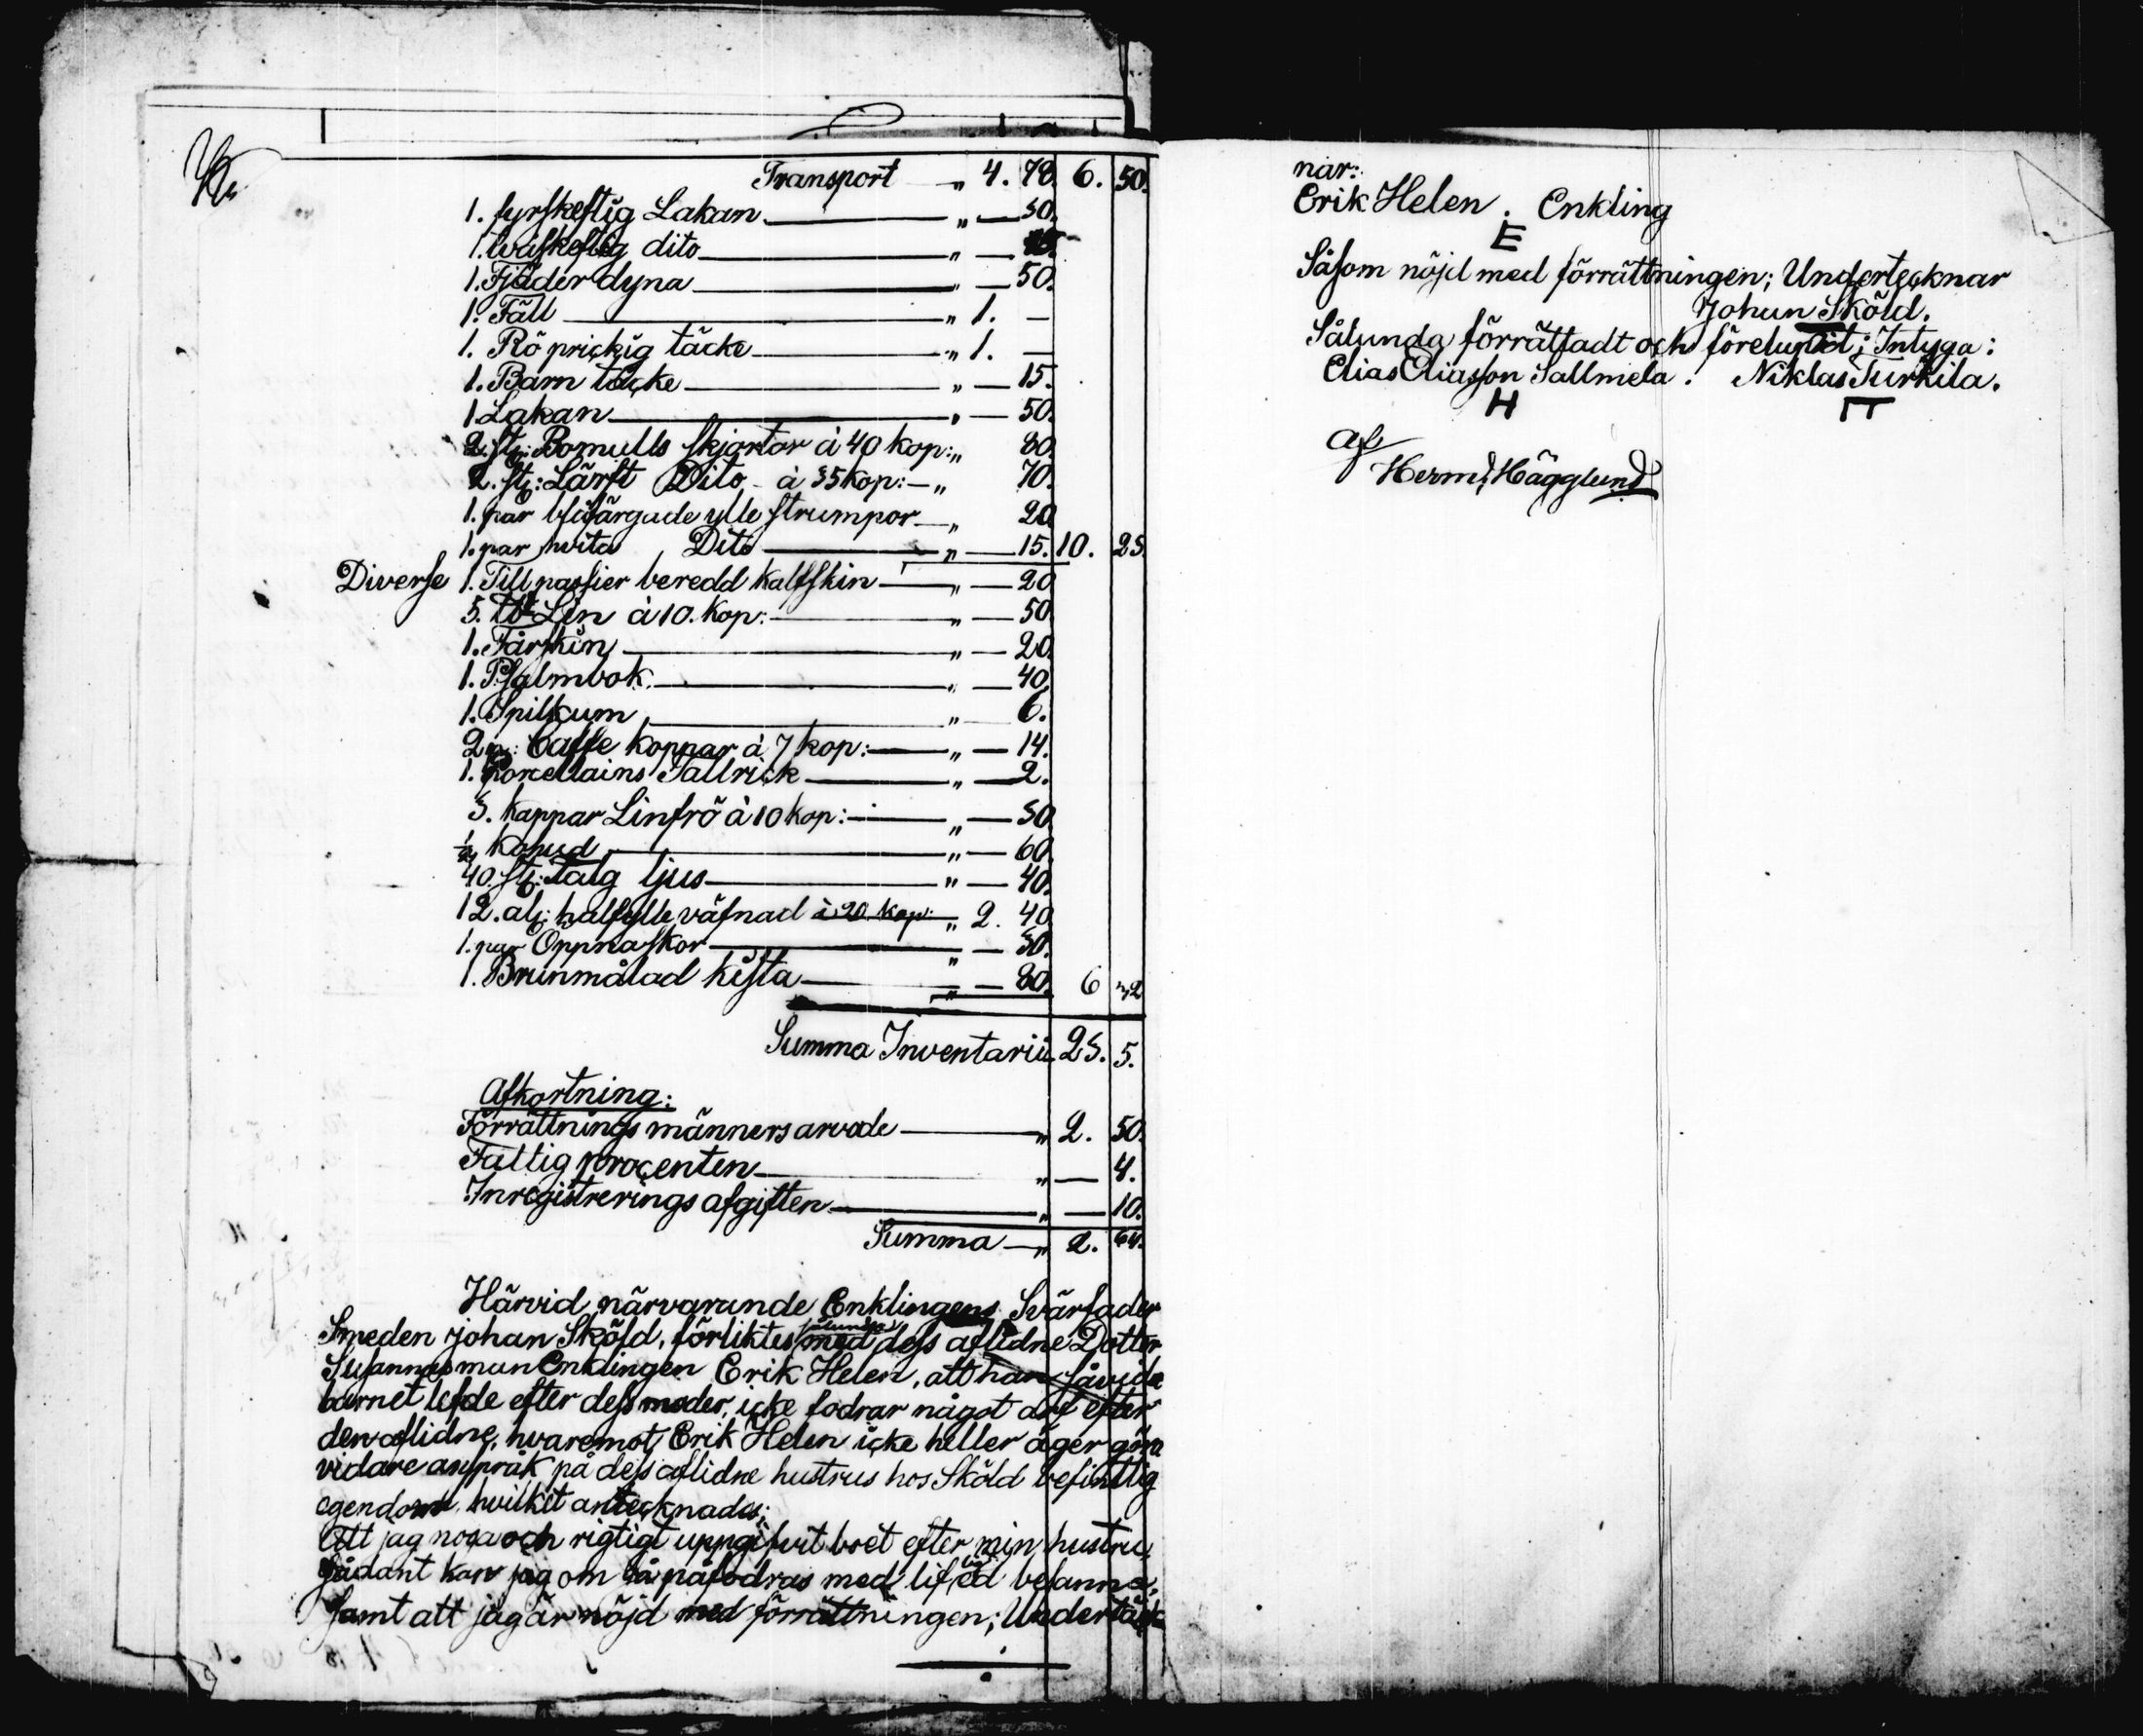 Transport — „ 4. 78. 6. 50.
1. fyrskeftig Lakan — „ — 50.
1. tvåskeftig dito — „ —
1. Fjäderdyna — „ — 50.
1. Fäll — „ 1. —
1. Rö prickig täcke — „ 1. —
1. Barn täcke — „ — 15.
1 Lakan — „ — 50.
2. st: Bomulls skjortor à 40 kop: „ 80.
2. st: Lärft Dito - à 35 kop: — „ 70.
1. par blåfärgade ylle strumpor — „ 20
1. par hvita Dito — „ — 15. 10. 28
Diverse 1. Till passier beredd kalfskin — „ — 20
5. ℔ Lin à 10. kop: — „ — 50.
1. Fårskin — „ — 20.
1. Psalmbok — „ — 40.
1. Spilkum — „ — 6.
2 p: Caffe koppar à 7 kop: — „ — 14.
1. porcellains Tallrick — „ — 2.
3. kappar Linfrö à 10 kop: — „ — 30
½ — „ — 60.
40. st: Talg ljus — „ — 40.
12. al: halfylle väfnad à 20 kop: „ 2. 40
1. par Öppna skor — „ — 30.
1. Brunmålad kista — „ — 80. 6 32
Summa Inventarii 23. 5.
Afkortning:
Förrättnings männers arvode — „ 2. 50.
Fattig procenten — „ — 4.
Inregistrerings afgiften — „ — 10.
Summa — „ 2. 64.
Härvid närvarande Enklingens Svärfader
Smeden Johan Sköld, förliktes sålunda med dess aflidne Dotter
Susannas man Enklingen Erik Helen, att han såvida
barnet lefde efter dess moder, icke fodrar något arf efter
den aflidne, hvaremot Erik Helen icke heller äger göra
vidare anspråk på dess aflidne hustrus hos Sköld befintlig
egendom, hvilket antecknades;
Att jag noga och rigtigt uppgifvit boet efter min hustru,
sådant kan jag om så påfodras med liflig ed besanna,
samt att jag är nöjd med förrättningen; Undertäck
nar:
Erik Helen. Enkling
E
Såsom nöjd med förrättningen; Undertecknar
Johan Sköld.
Sålunda förrättadt och förelupit; Intyga:
Elias Eliasson Sallmela. Niklas Turkila.
H
af
Herm: Hägglund